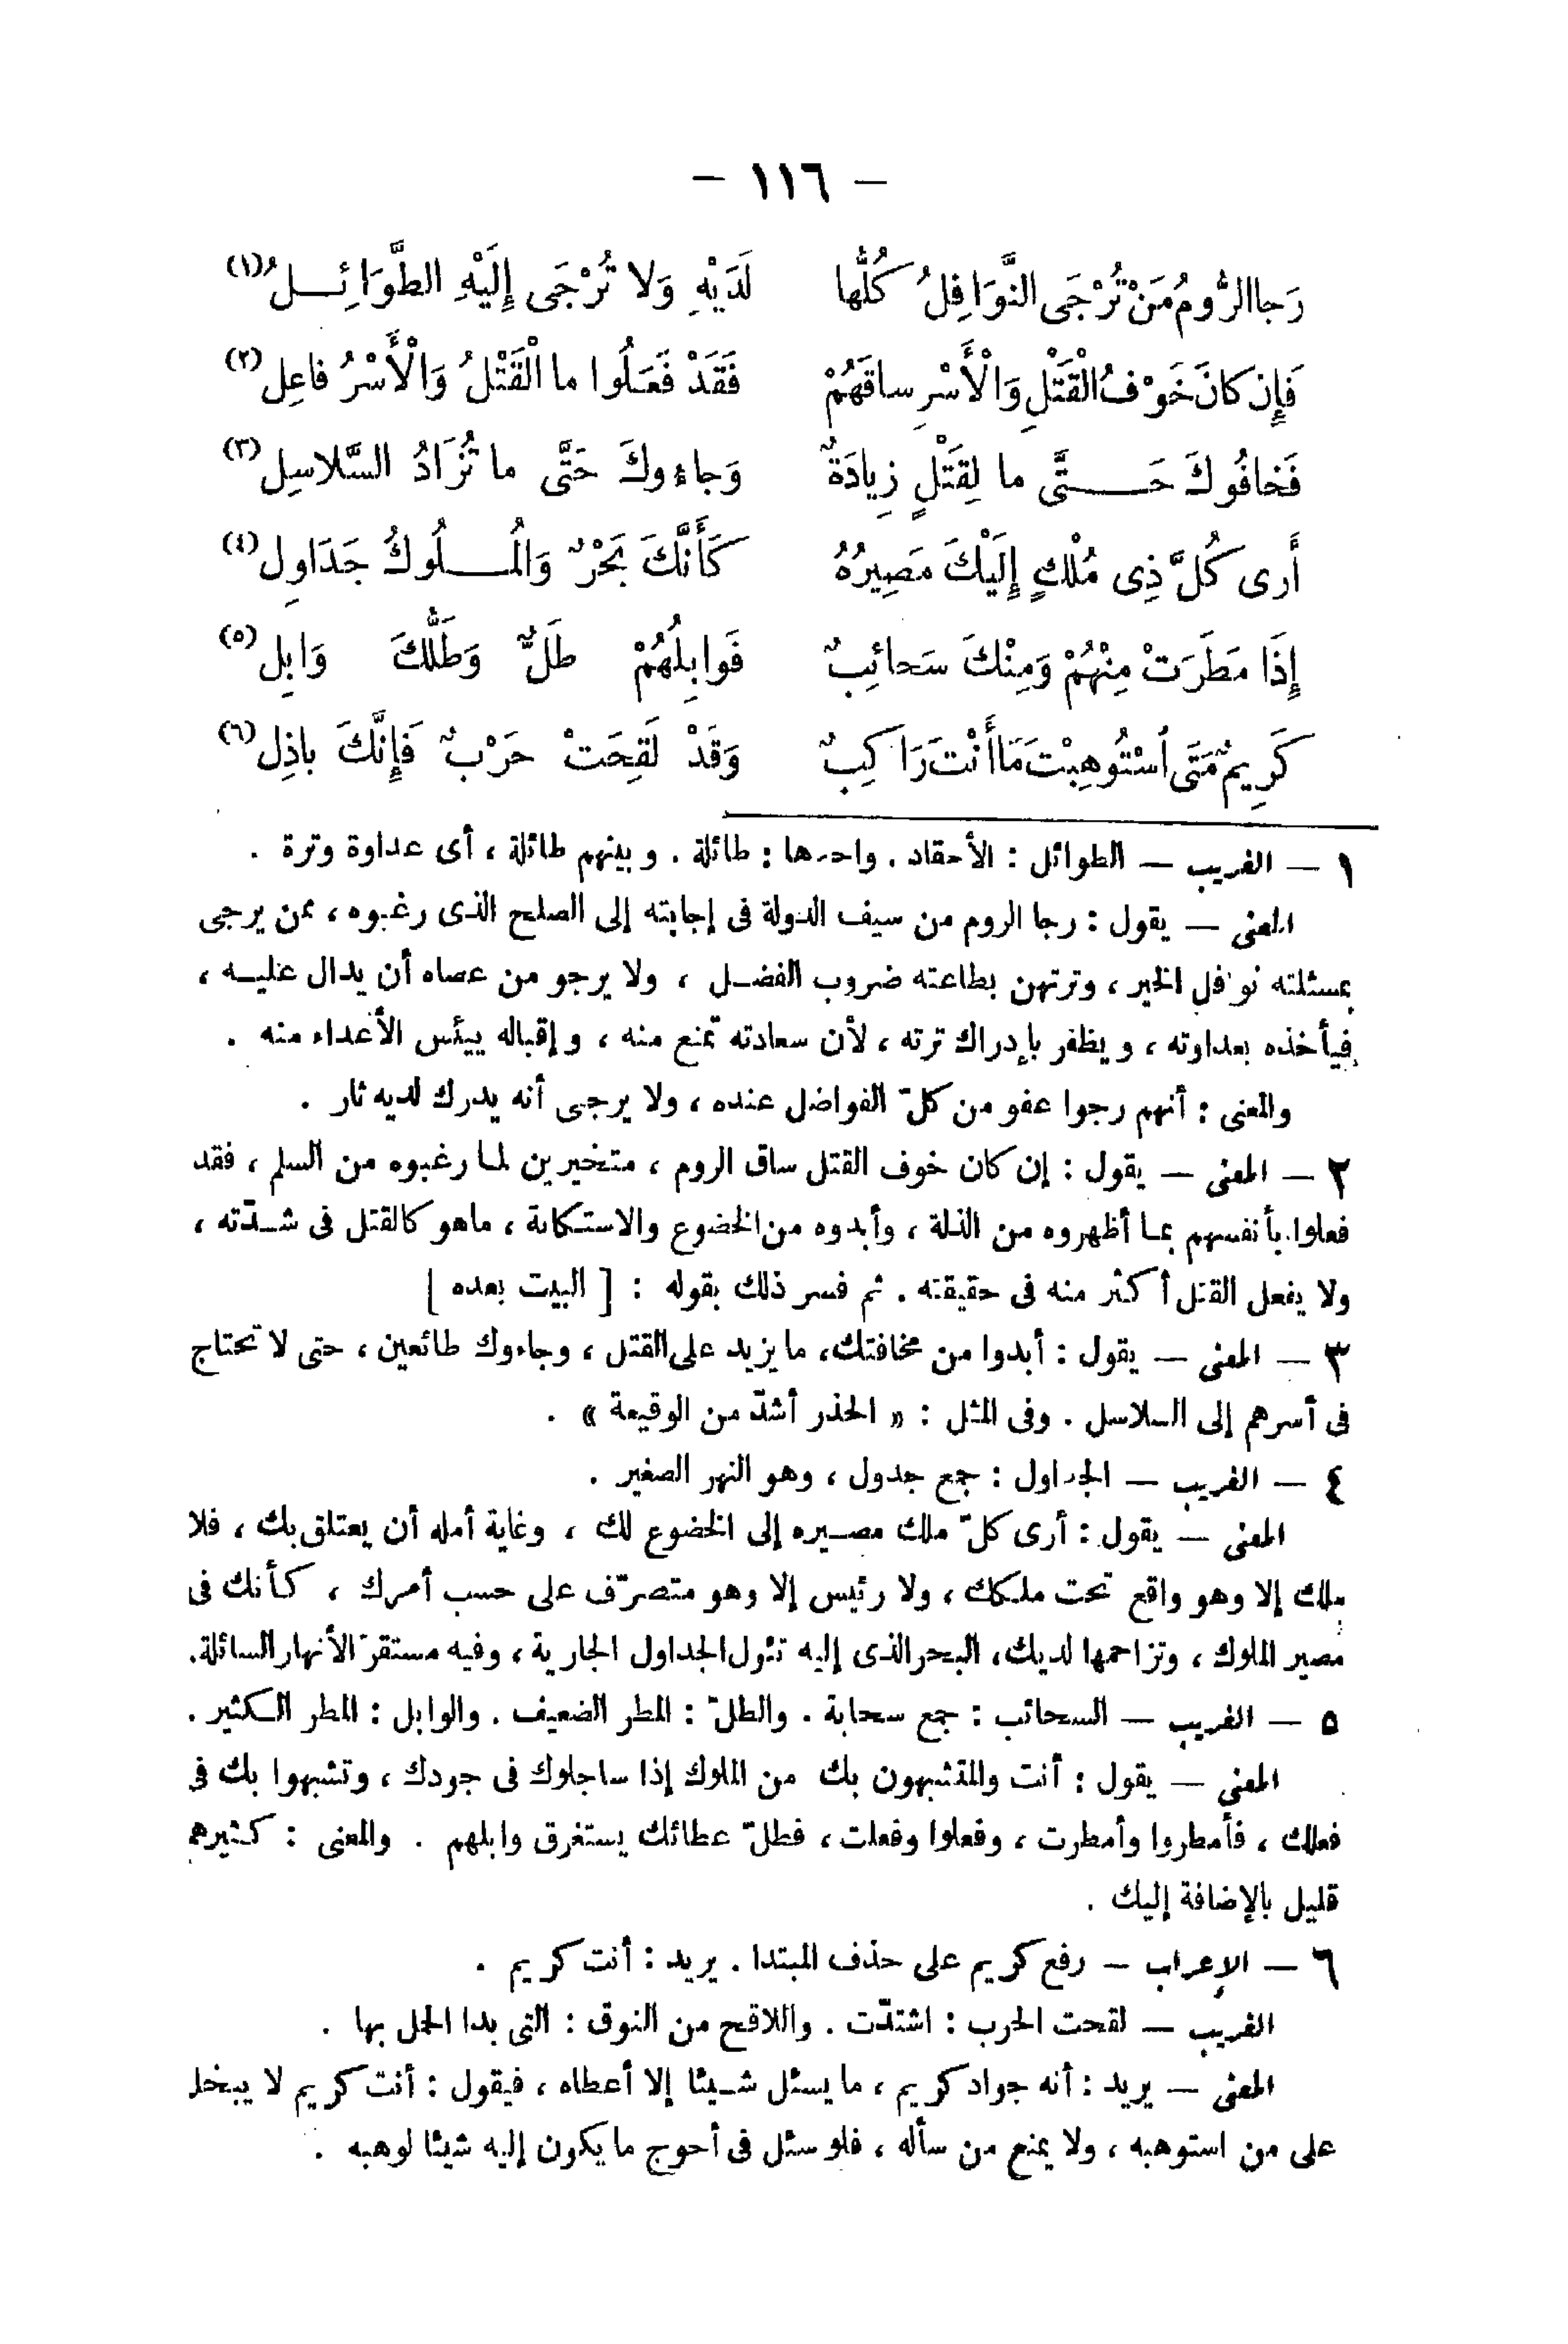 — ١١٦ —
رَجا الرُّومُ مَنْ تُرْجَى النَّوَافِلُ كُلُّها لَدَيْهِ وَلا تُرْجَى إِلَيْهِ الطَّوَائِلُ (١)
فَإِن كانَ خَوْفُ الْقَتْلِ وَالْأَسْرِ ساقَهُمْ فَقَدْ فَعَلُوا ما الْقَتْلُ وَالْأَسْرُ فاعِل (٢)
فَخافُوكَ حَتَّى ما لِقَتْلٍ زِيادَةٌ وَجاءوكَ حَتَّى ما تُزَادُ السَّلاسِل (٣)
أَرى كُلَّ ذِى مُلْكٍ إِلَيْكَ مَصِيرُهُ كَأَنَّكَ بَحْرٌ وَالْمُلُوكُ جَدَاوِل (٤)
إِذَا مَطَرَتْ مِنْهُمْ وَمِنْكَ سَحائِبٌ فَوابِلُهُمْ طَلٌّ وَطَلُّكَ وَابِل (٥)
كَرِيمٌ مَتَى اُسْتُوهِبْتَ مَا أَنْتَ رَاكِبٌ وَقَدْ لَقِحَتْ حَرْبٌ فَإِنَّكَ باذِل (٦)
١ — الغريب — الطوائل : الأحقاد . واحدها : طائلة . وبينهم طائلة ، أى عداوة وترة .
المعنى — يقول : رجا الروم من سيف الدولة فى إجابته إلى الصلح الذى رغبوه ، ممن يرجى
بمسئلته نوافل الخير ، وترتهن بطاعته ضروب الفضل ، ولا يرجو من عصاه أن يدال عليه ،
فيأخذه بعداوته ، ويظفر بإدراك ترته ، لأن سعادته تمنع منه ، وإقباله ييئس الأعداء منه .
والمعنى : أنهم رجوا عفو من كلّ الفواضل عنده ، ولا يرجى أنه يدرك لديه ثار .
٢ — المعنى — يقول : إن كان خوف القتل ساق الروم ، متخيرين لما رغبوه من السلم ، فقد
فعلوا بأنفسهم بما أظهروه من الذلة ، وأبدوه من الخضوع والاستكانة ، ماهو كالقتل فى شدّته ،
ولا يفعل القتل أكثر منه فى حقيقته . ثم فسر ذلك بقوله : [ البيت بعده ]
٣ — المعنى — يقول : أبدوا من مخافتك، ما يزيد على القتل ، وجاءوك طائعين ، حتى لا تحتاج
فى أسرهم إلى السلاسل . وفى المثل : « الحذر أشدّ من الوقيعة » .
٤ — الغريب — الجداول : جمع جدول ، وهو النهر الصغير .
المعنى — يقول : أرى كلّ ملك مصيره إلى الخضوع لك ، وغاية أمله أن يعتلق بك ، فلا
ملك إلا وهو واقع تحت ملكك ، ولا رئيس إلا وهو متصرّف على حسب أمرك ، كأنك فى
مصير الملوك ، وتزاحمها لديك، البحر الذى إليه تئول الجداول الجارية ، وفيه مستقرّ الأنهار السائلة.
٥ — الغريب — السحائب : جمع سحابة . والطلّ : المطر الضعيف . والوابل : المطر الكثير .
المعنى — يقول : أنت والمتشبهون بك من الملوك إذا ساجلوك فى جودك ، وتشبهوا بك فى
فعلك ، فأمطروا وأمطرت ، وفعلوا وفعلت ، فطلّ عطائك يستغرق وابلهم . والمعنى : كثيرهم
قليل بالإضافة إليك .
٦ — الإعراب — رفع كريم على حذف المبتدا . يريد : أنت كريم .
الغريب — لقحت الحرب : اشتدّت . واللاقح من النوق : التى بدا الحمل بها .
المعنى — يريد : أنه جواد كريم ، ما يسئل شيئا إلا أعطاه ، فيقول : أنت كريم لا يبخل
على من استوهبه ، ولا يمنع من سأله ، فلو سئل فى أحوج ما يكون إليه شيئا لوهبه .